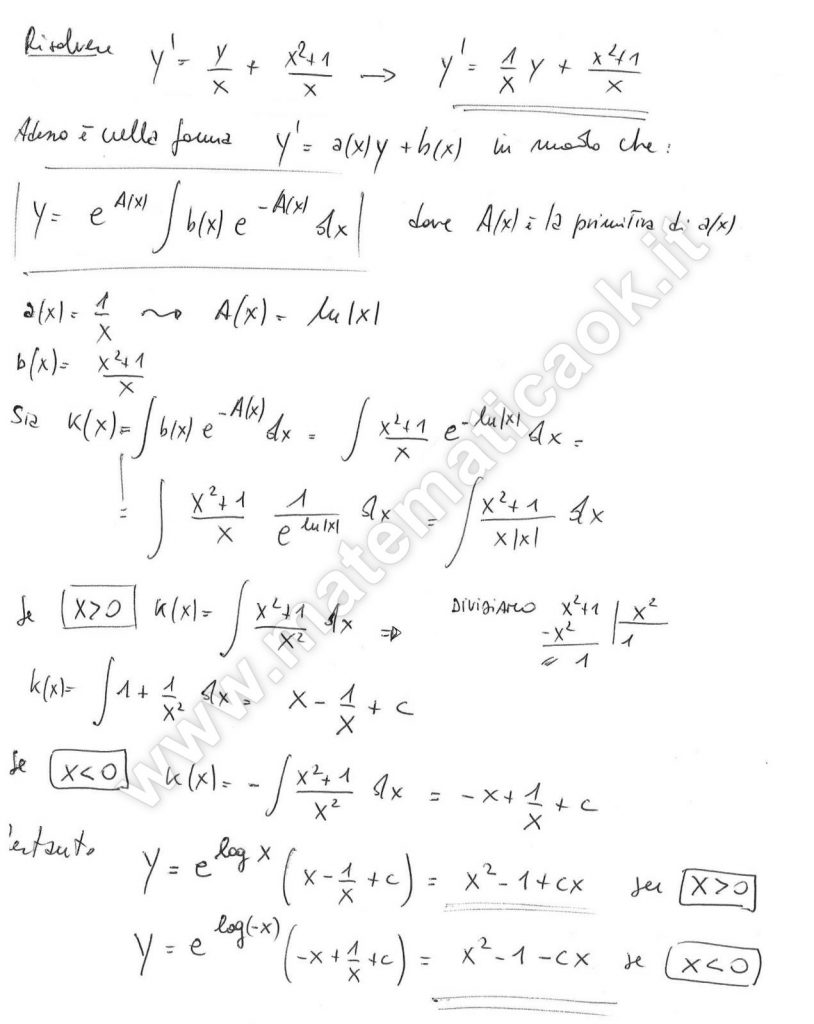 Risolvere y' = y/x + (x²+1)/x → y' = 1/x y + (x²+1)/x
Adesso è nella forma y' = a(x)y + b(x) in modo che:
y = e^{A(x)} ∫ b(x) e^{-A(x)} dx dove A(x) è la primitiva di a(x)
a(x) = 1/x ⇝ A(x) = ln|x|
b(x) = (x²+1)/x
Sia K(x) = ∫ b(x) e^{-A(x)} dx = ∫ (x²+1)/x e^{-ln|x|} dx =
= ∫ (x²+1)/x 1/e^{ln|x|} dx = ∫ (x²+1)/(x|x|) dx
Se x>0 K(x) = ∫ (x²+1)/x² dx ⇒ DIVIDIAMO x²+1 | x²
-x² 1
= 1
k(x) = ∫ 1 + 1/x² dx = x - 1/x + c
Se x<0 K(x) = - ∫ (x²+1)/x² dx = -x + 1/x + c
'ertanto y = e^{log x} (x - 1/x + c) = x² - 1 + cx se x>0
y = e^{log(-x)} (-x + 1/x + c) = x² - 1 - cx se x<0
www.matematicaok.it